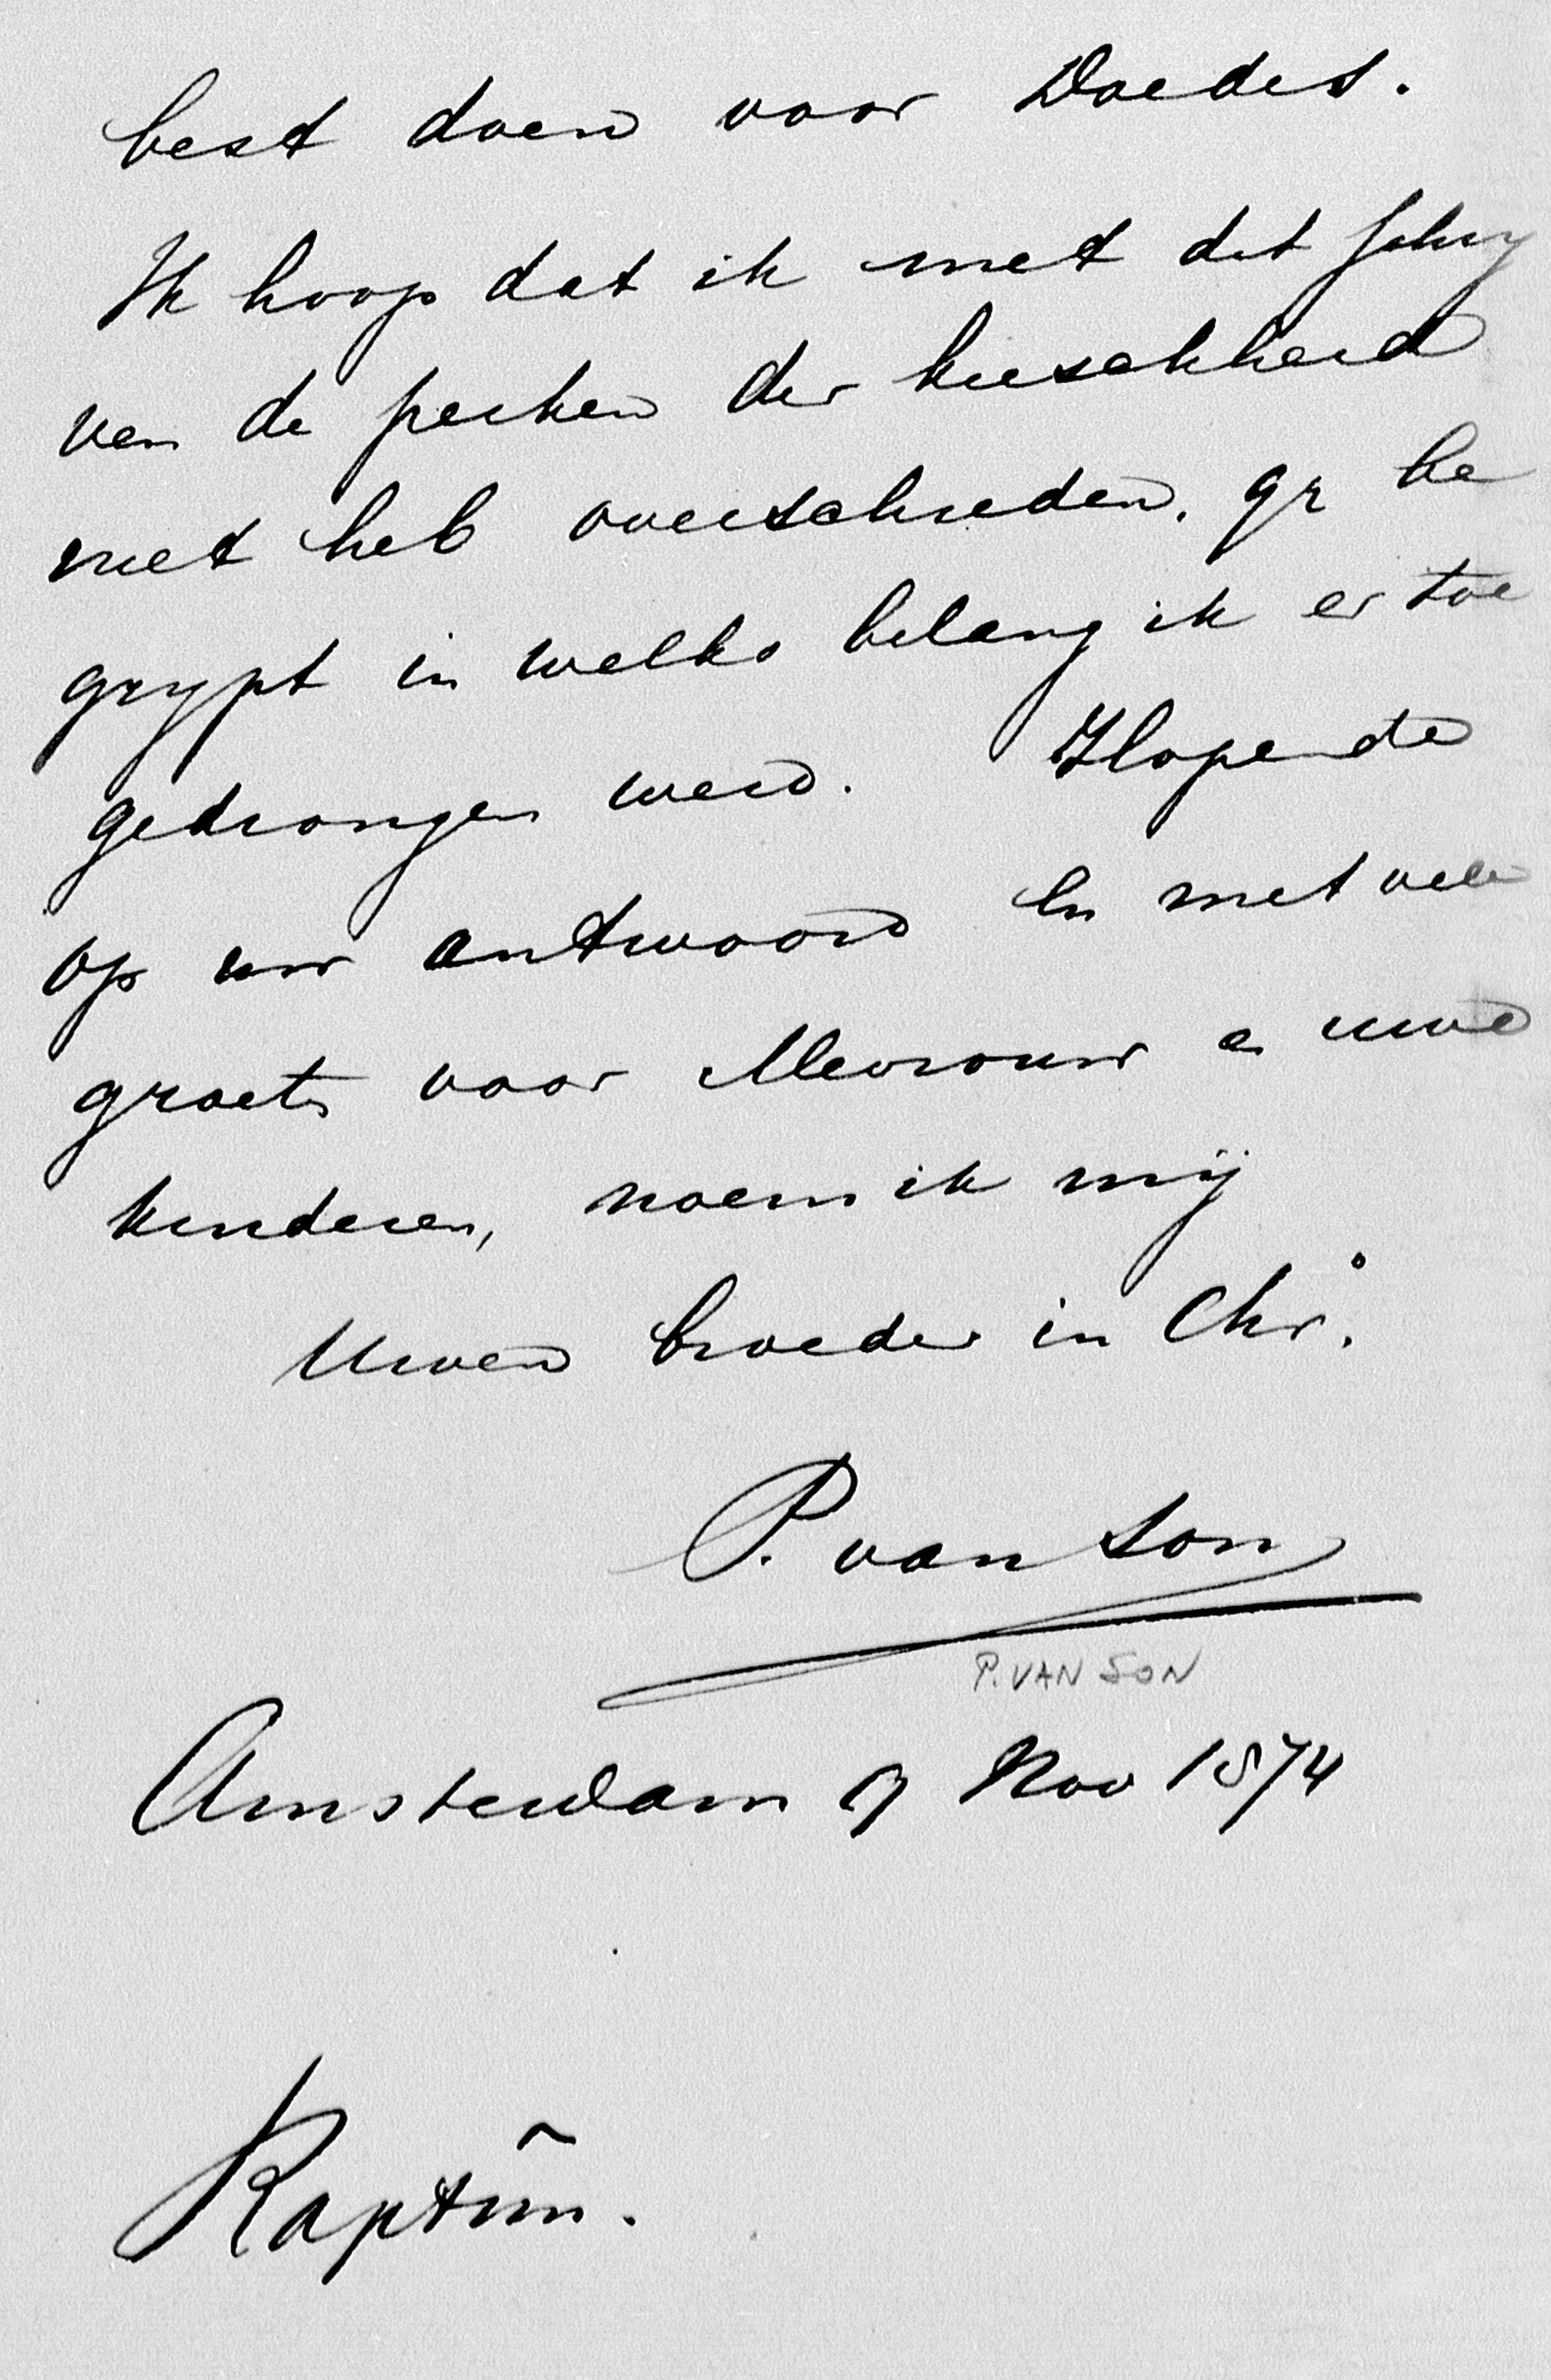 best doen voor Doedes.
Ik hoop dat ik met dit
van de perken der kieschheid
niet heb overschreden. gy be
grypt in welks belang ik er toe
gedrongen werd. Hopende
op uw antwoord en met vele
groets voor Mevrouw en uwe
kinderen, noem ik mij
Uwen broeder in Chr.°
P. van Son
P. VAN SON
Amsterdam 9 Nov 1874
Raptim.